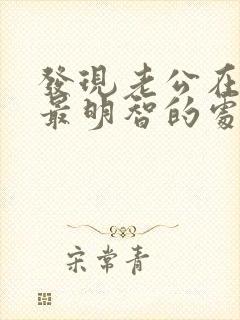 發現老公在
最明智的處
宋常青